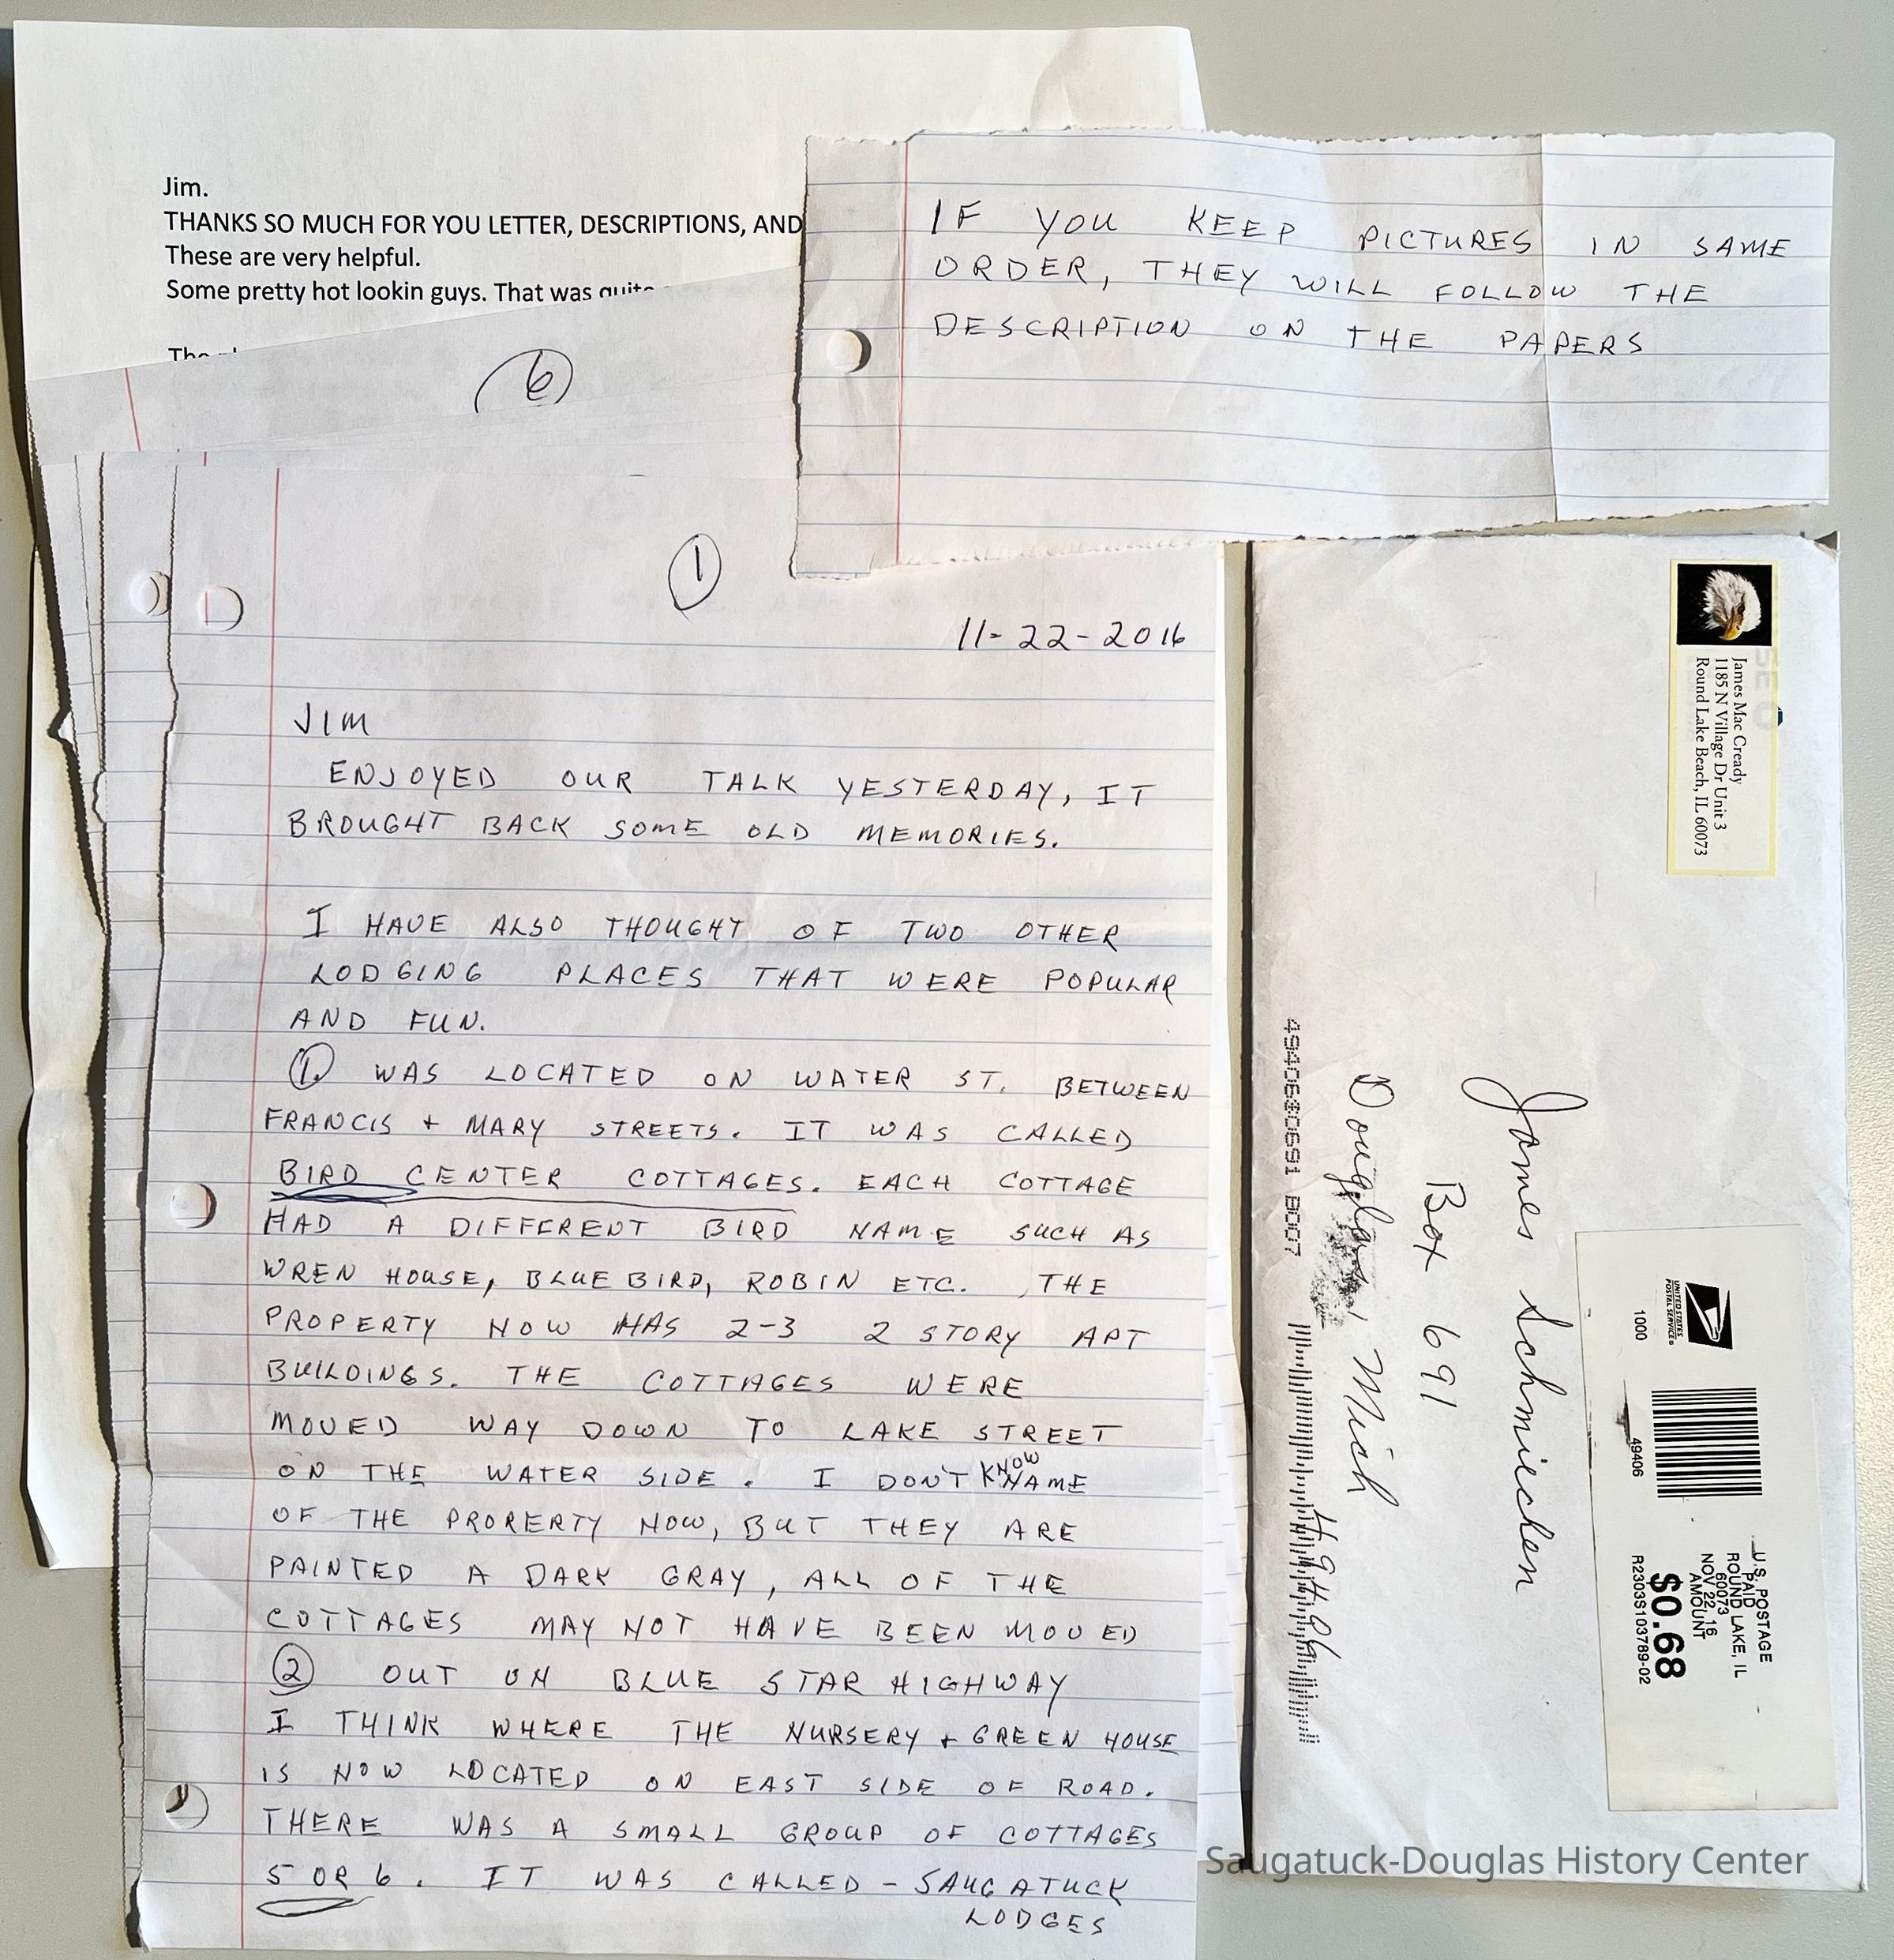 Jim.
THANKS SO MUCH FOR YOU LETTER, DESCRIPTIONS, AND
These are very helpful.
Some pretty hot lookin guys. That was quite
6
IF YOU KEEP PICTURES IN SAME
ORDER, THEY WILL FOLLOW THE
DESCRIPTION ON THE PAPERS
1
11-22-2016
JIM
ENJOYED OUR TALK YESTERDAY, IT
BROUGHT BACK SOME OLD MEMORIES.
I HAVE ALSO THOUGHT OF TWO OTHER
LODGING PLACES THAT WERE POPULAR
AND FUN.
1. WAS LOCATED ON WATER ST. BETWEEN
FRANCIS + MARY STREETS. IT WAS CALLED
BIRD CENTER COTTAGES. EACH COTTAGE
HAD A DIFFERENT BIRD NAME SUCH AS
WREN HOUSE, BLUE BIRD, ROBIN ETC. THE
PROPERTY NOW HAS 2-3 2 STORY APT
BUILDINGS. THE COTTAGES WERE
MOVED WAY DOWN TO LAKE STREET
ON THE WATER SIDE. I DON'T KNOW NAME
OF THE PRORERTY NOW, BUT THEY ARE
PAINTED A DARK GRAY, ALL OF THE
COTTAGES MAY NOT HAVE BEEN MOVED
2 OUT ON BLUE STAR HIGHWAY
I THINK WHERE THE NURSERY + GREEN HOUSE
IS NOW LOCATED ON EAST SIDE OF ROAD.
THERE WAS A SMALL GROUP OF COTTAGES
5 OR 6. IT WAS CALLED - SAUGATUCK
LODGES
James Mac Cready
1185 N Village Dr Unit 3
Round Lake Beach, IL 60073
James Schmiechen
Box 691
Douglas, Mich
49406
49406$0691 B007
UNITED STATES
POSTAL SERVICE
1000
49406
U.S. POSTAGE
PAID
ROUND LAKE, IL
60073
NOV 22, 16
AMOUNT
$0.68
R2303S103789-02
Saugatuck-Douglas History Center